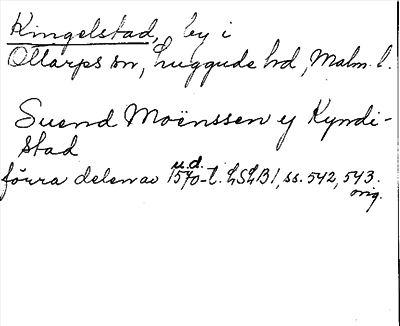 Kingelstad, by i
Ottarps sn, Luggude hd, Malm. l.
Suend Moënssen y Kyndi-
stad
förra delen av u.d. 1570-t. LSLB1, ss. 542, 543.
orig.